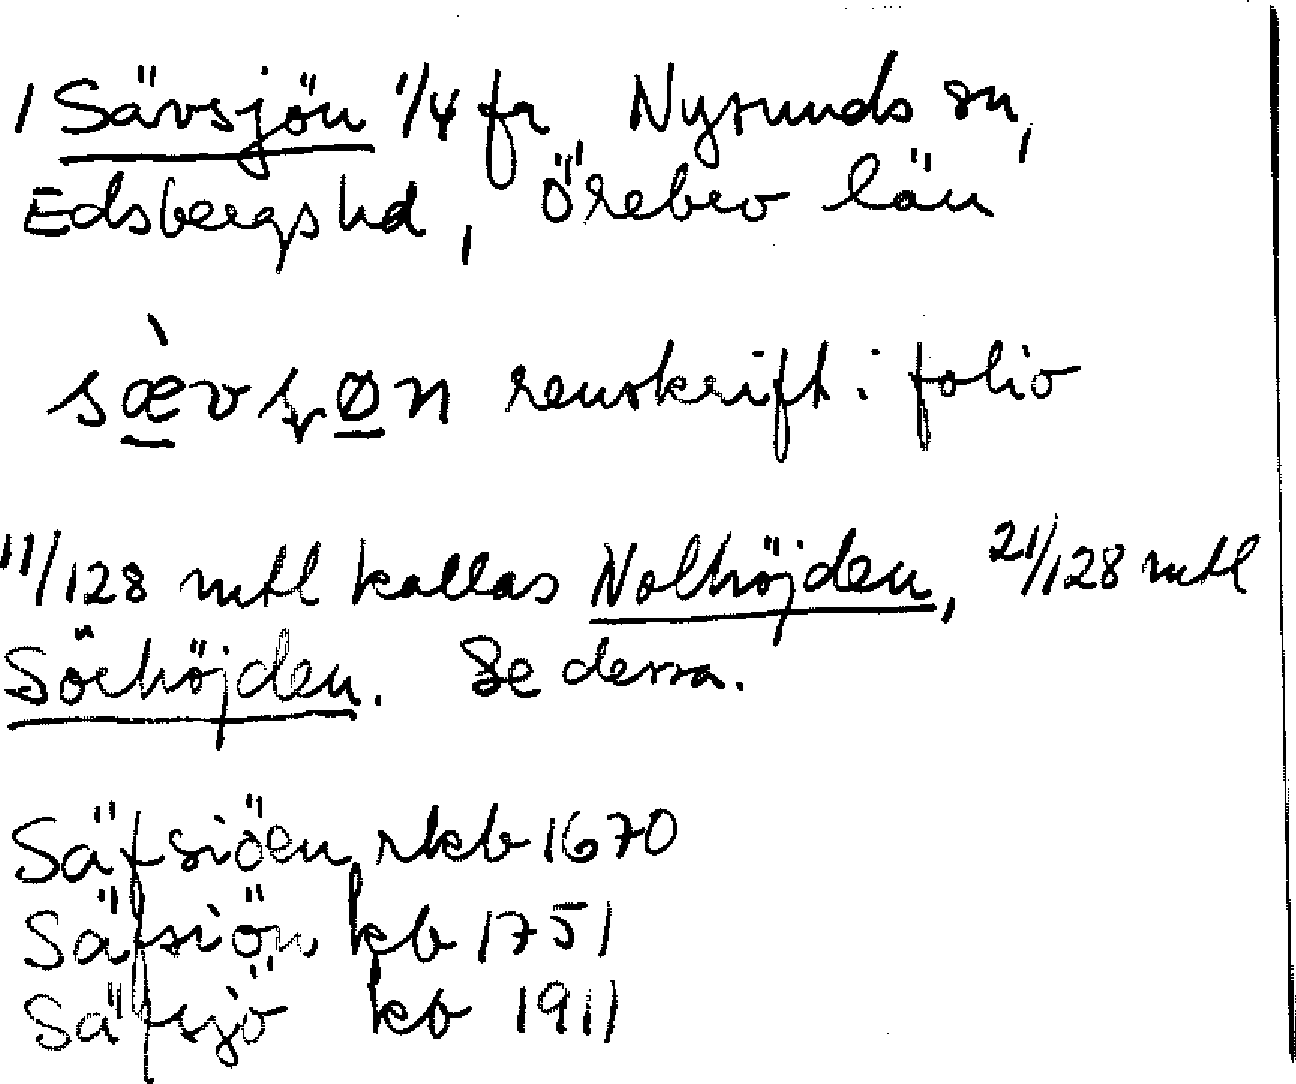 1 Sävsjön 1/4 fr, Nysunds sn,
Edsbergs hd, Örebro län
sæ̀vsøn renskrift i folio
11/128 mtl kallas Nolhöjden, 21/128 mtl
Sörhöjden. Se dessa.
Säfsiöen rkb 1670
Säfsiön kb 1751
Säfsjö kb 1911